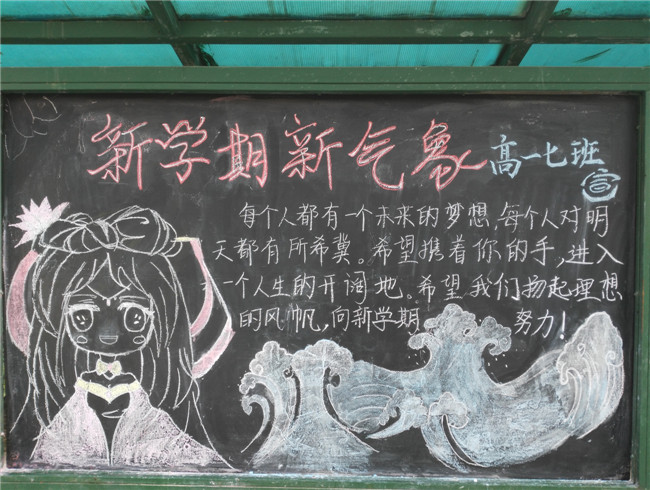 新学期新气象
高一七班
宣
每个人都有一个未来的梦想,每个人对明
天都有所希冀。希望携着你的手,进入
一个人生的开阔地。希望我们扬起理想
的风帆,向新学期 努力!